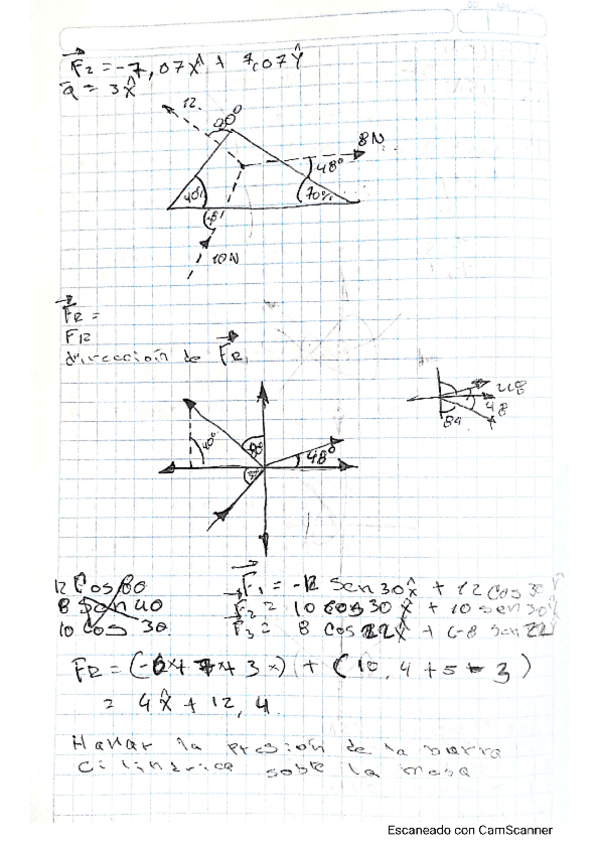 F2 = -7,07x̂ + 7,07ŷ
a = 3x̂
12
8N
48°
40°
70°
10N
FR =
FR
dirección de FR
48
84
40°
48°
12 Cos 60
8 sen 40
10 cos 30
F1 = -12 sen 30x̂ + 12 cos 30 ŷ
F2 = 10 cos 30 x̂ + 10 sen 30ŷ
F3 = 8 cos 22x̂ + (-8 sen 22ŷ
+ (10,4 + 5 - 3)
= 4x̂ + 12,4
Hallar la presión de la barra
cilindrica sobre la mesa
Escaneado con CamScanner